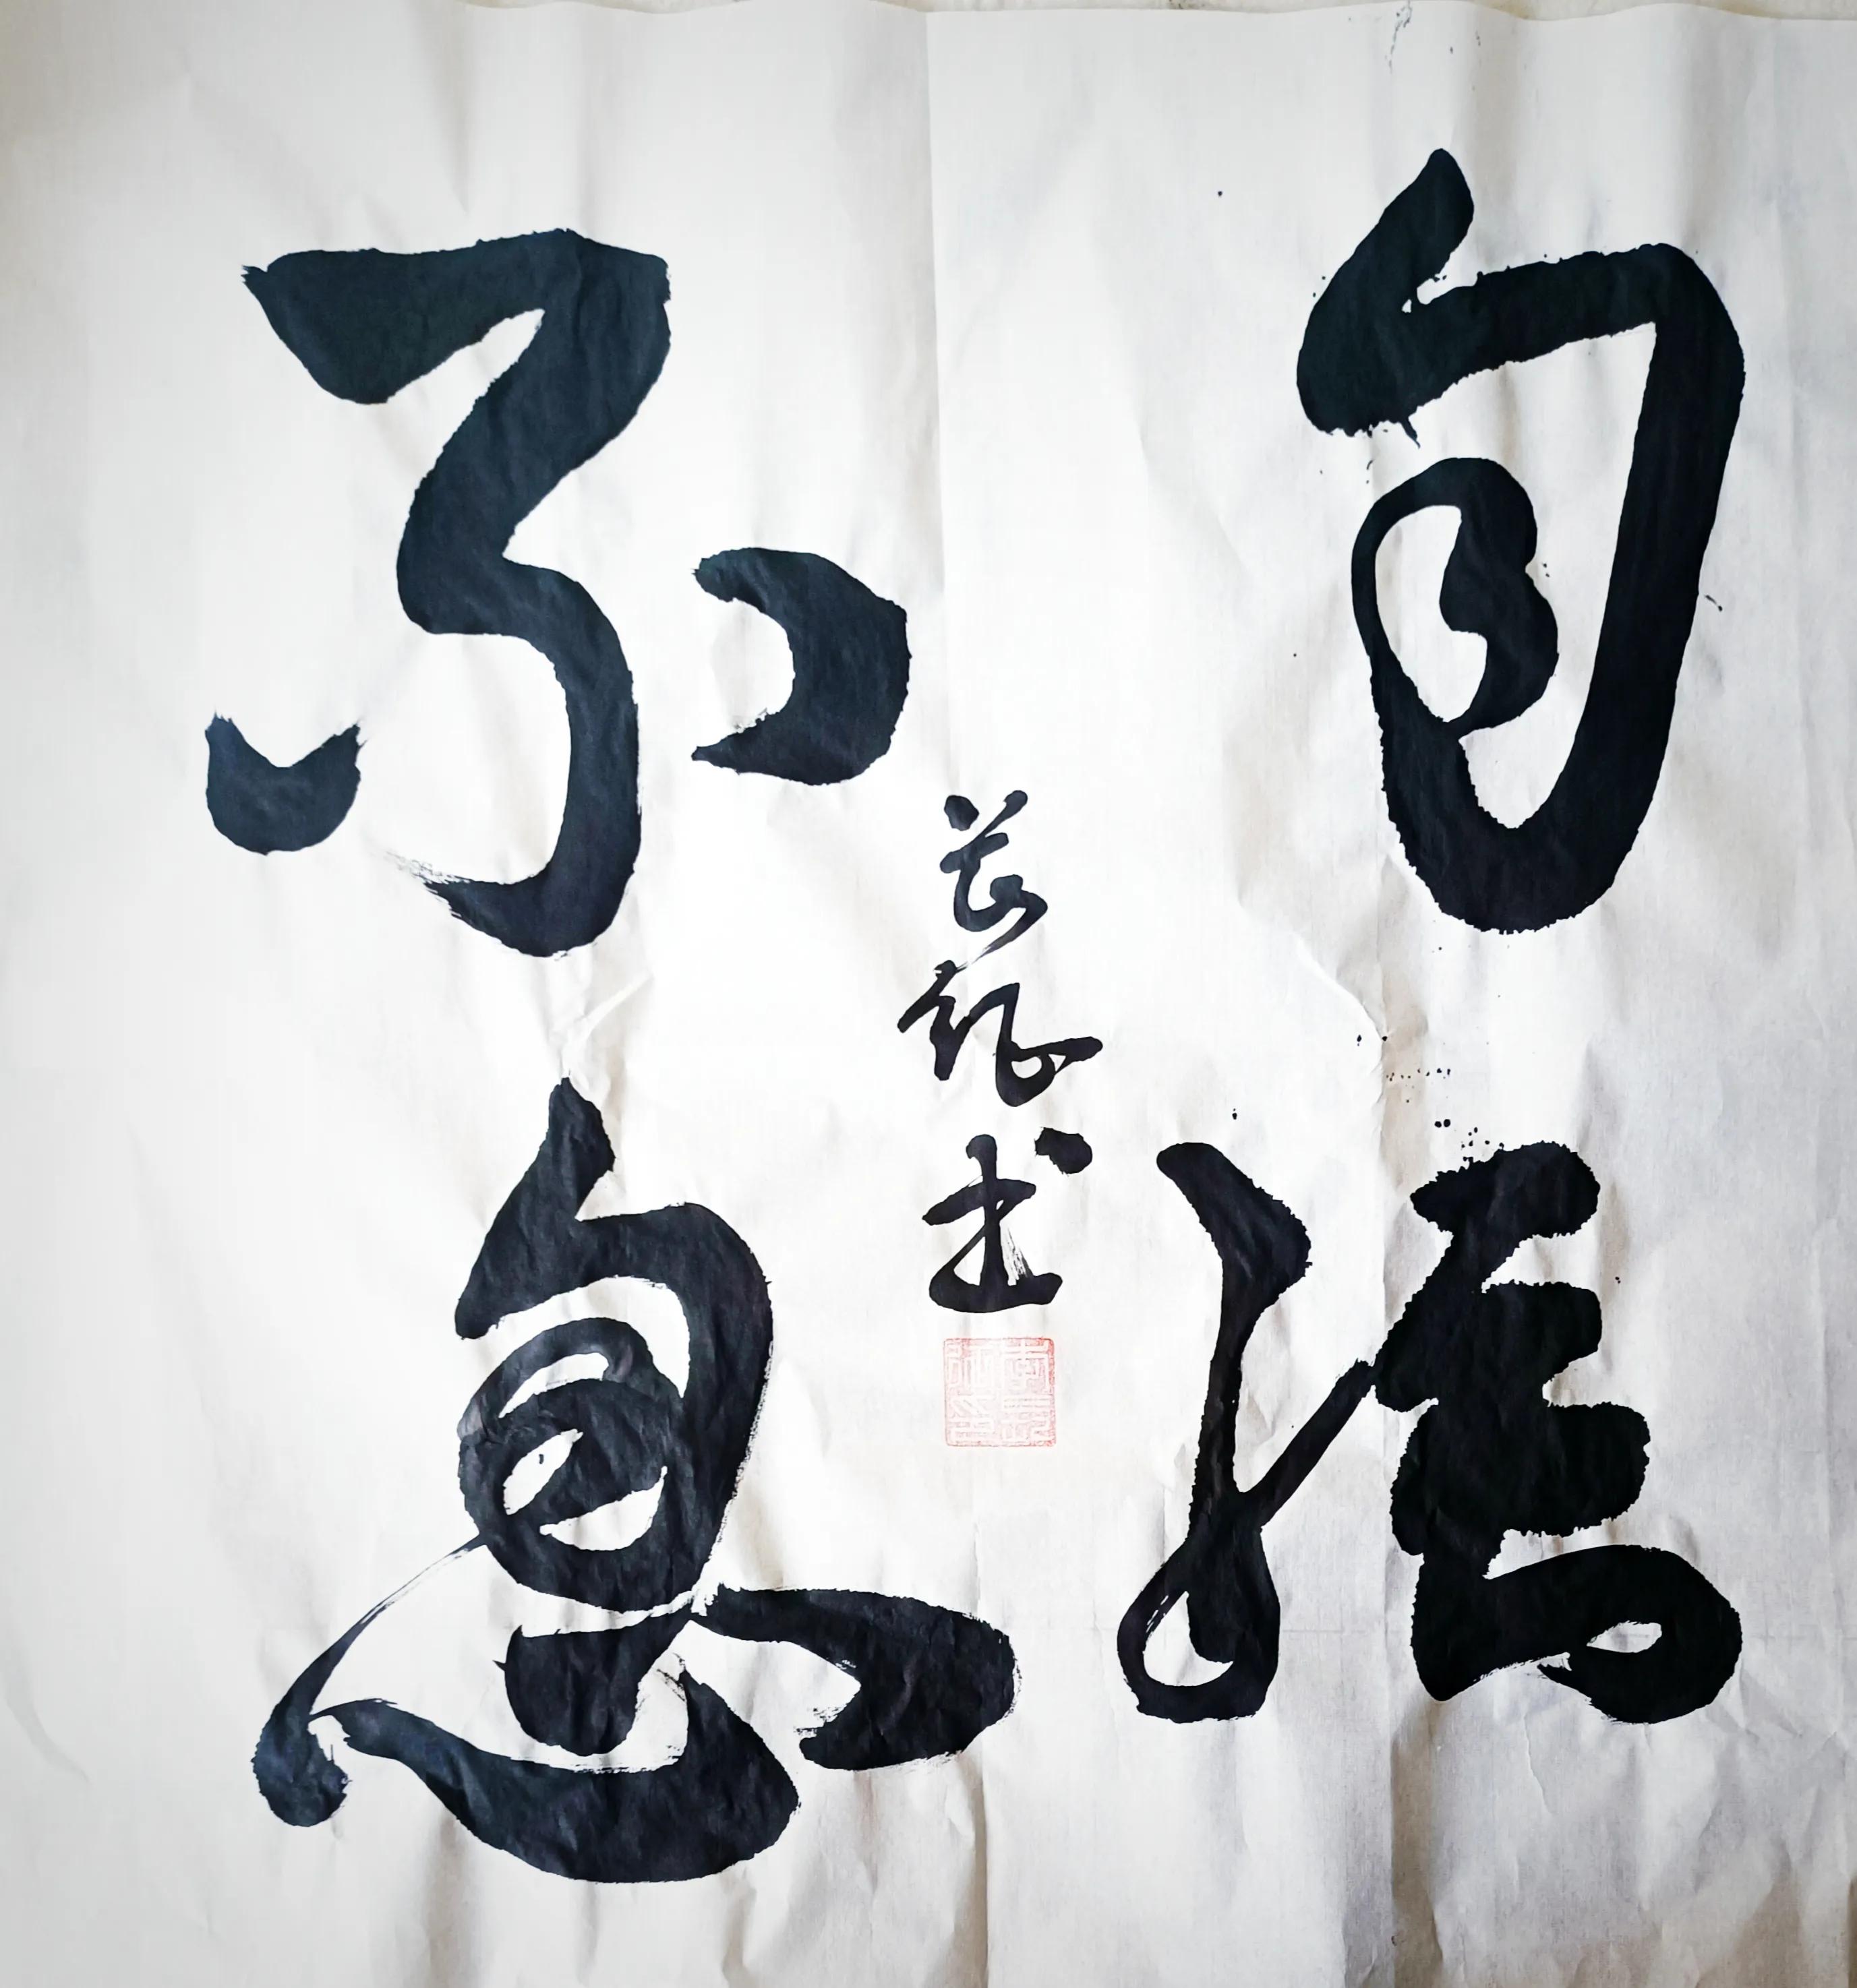 自强
不息
书